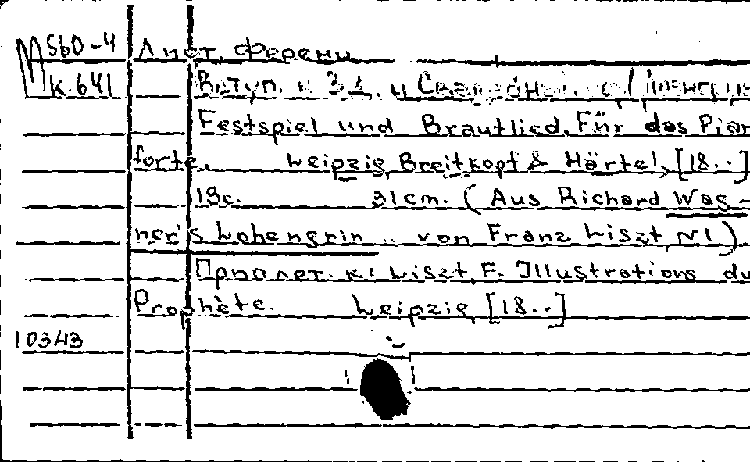 M 560-4
Лист, Ференц
К 641
Вступ. к 3 д. и Свадебная
Festspiel und Brautlied. Für das Pian
forte. Leipzig, Breitkopf & Härtel, [18..]
19c. 31 cm. (Aus Richard Wag-
ner's Lohengrin .. von Franz Liszt, N1)
Приплет. к: Liszt, F. Illustrations du
Prophète. Leipzig, [18..]
10343